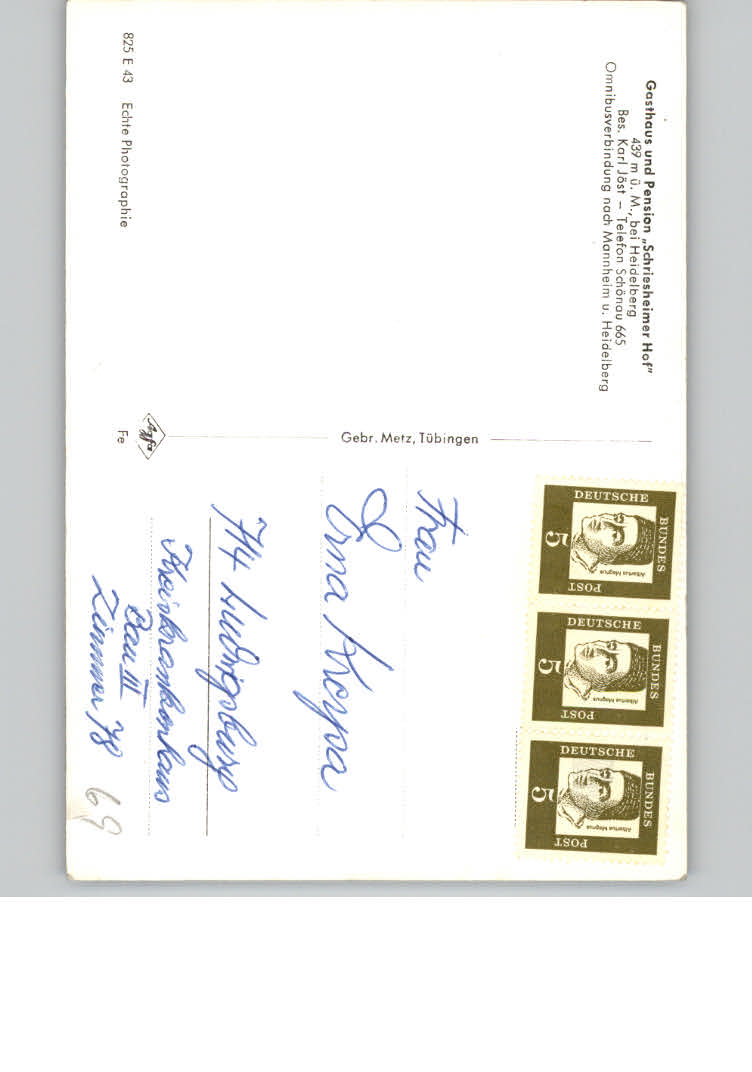 Gasthaus und Pension „Schriesheimer Hof"
439 m ü. M., bei Heidelberg
Bes. Karl Jöst – Telefon Schönau 665
Omnibusverbindung nach Mannheim u. Heidelberg
825 E 43 Echte Photographie
Gebr. Metz, Tübingen
Agfa
Fe
DEUTSCHE
BUNDES
POST
5
Albertus Magnus
DEUTSCHE
BUNDES
POST
5
Albertus Magnus
DEUTSCHE
BUNDES
POST
5
Albertus Magnus
Frau
Erna
714 Ludwigsburg
Kreiskrankenhaus
Bau III
Zimmer 78
69